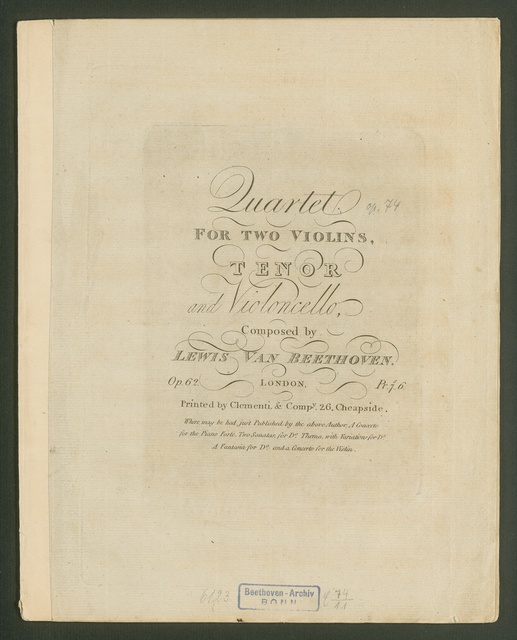 Quartet. op. 74
FOR TWO VIOLINS,
TENOR
and Violoncello,
Composed by
LEWIS VAN BEETHOVEN.
Op. 62 LONDON. Pr. 7. 6
Printed by Clementi. & Compy. 26, Cheapside.
Where may be had just Published by the above Author, A Concerto
for the Piano Forte. Two Sonatas, for Do. Thema, with Variations for Do.
A Fantasia for Do. and a Concerto for the Violin.
6123
Beethoven-Archiv
BONN
C 74